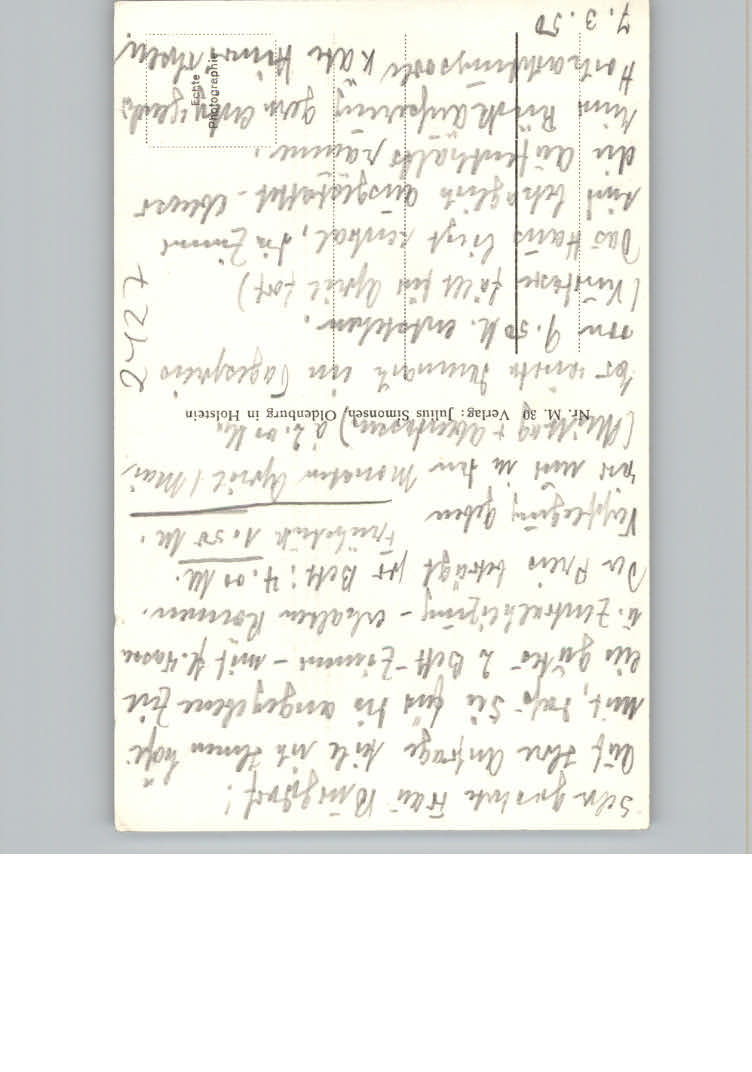 Sehr geehrte Frau
Auf Ihre Anfrage teile ich Ihnen höfl.
mit, daß Sie für die angegebene Zeit
ein gutes 2 Bett-Zimmer - mit fl. Wasser
u. Zentralheizung - erhalten können.
Der Preis beträgt pro Bett: 4.00 M.
Frühstück 1.50 M.
Verpflegung geben
wir nur in den Monaten April/Mai
(Mittag + Abendessen) à 2.00 M.
Es würde demnach ein Tagespreis
von 9.50 M. entstehen.
(Kurtaxe fällt für April fort)
Das Haus liegt zentral, die Zimmer
sind behaglich ausgestattet - ebenso
die Aufenthaltsräume.
Ihrer Rückäußerung gern entgegensehend
Hochachtungsvoll Käte
7.3.50
2427
Nr. M. 30 Verlag: Julius Simonsen, Oldenburg in Holstein
Echte
Photographie